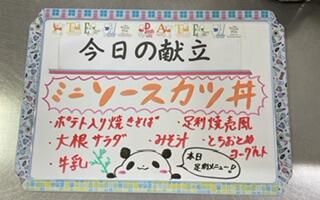 今日の献立
ミニソースカツ丼
・ポテト入り焼きそば ・足利焼売風
・大根サラダ ・みそ汁 ・とちおとめヨーグルト
・牛乳
本日足利メニュー!